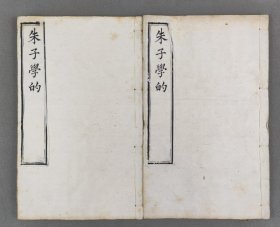 朱子學的
朱子學的